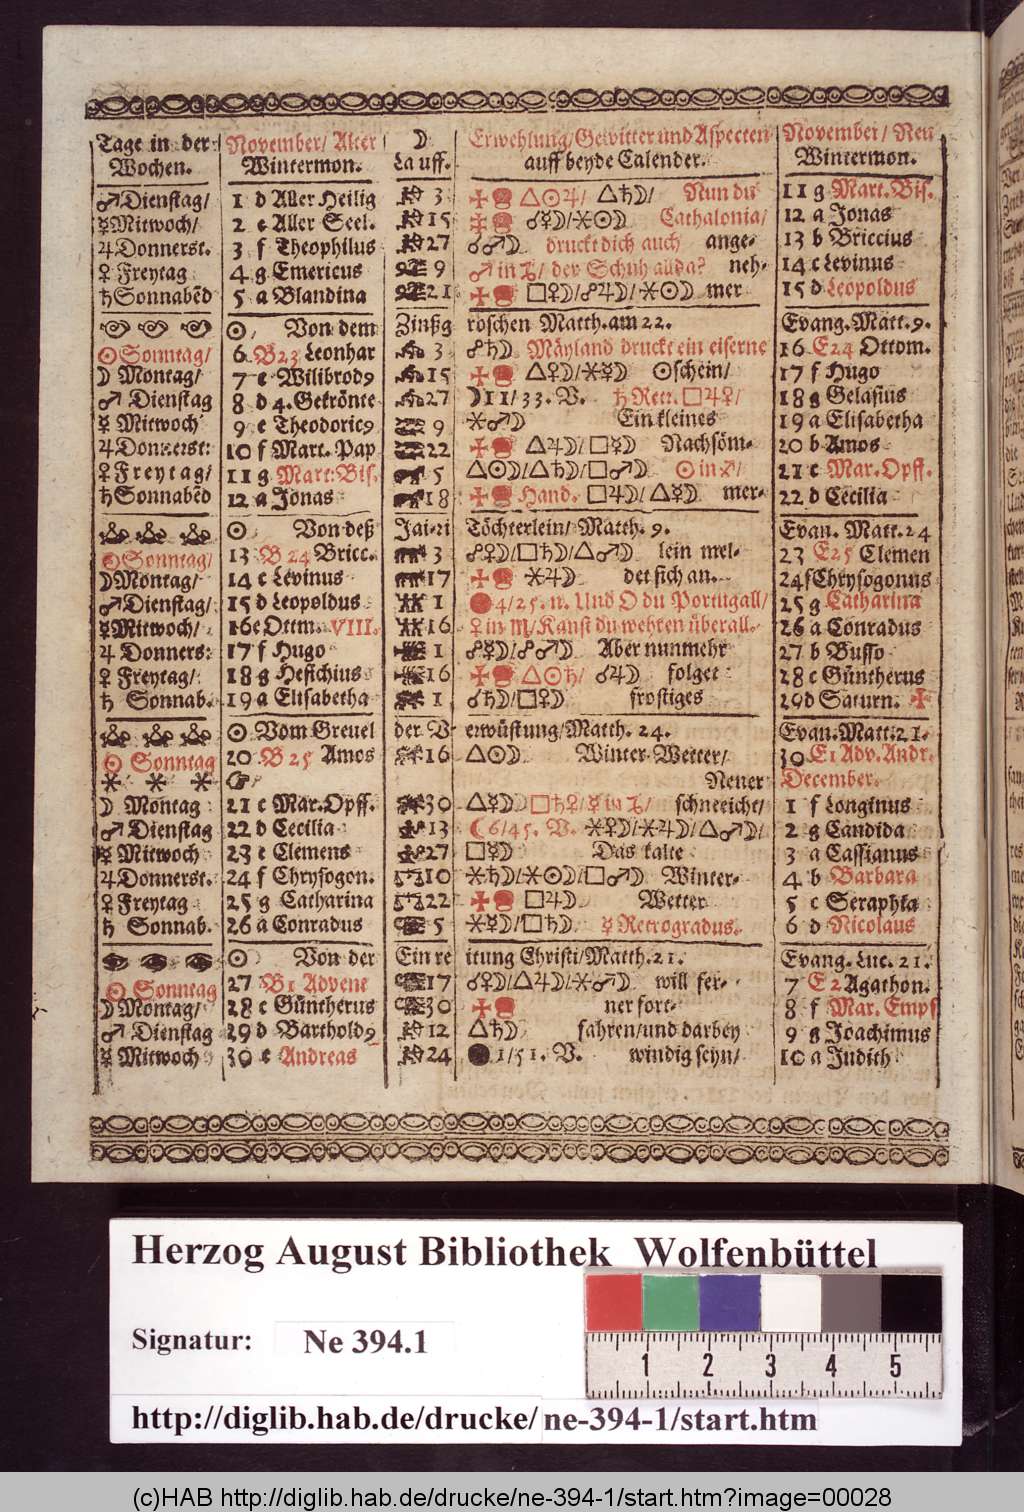 Tage in der November/ Alter ☽ Erwehlung/Gewitter und Aspecten November/ Neu
Wochen. Wintermon. Lauff. auff beyde Calender. Wintermon.
♂Dienstag/ 1 d Aller Heilig 3 △☉♃/ △♄☽/ Nun du 11 g Mart. Bis.
☿Mitwoch/ 2 e Aller Seel. 15 ☌☿☽/⚹☉☽ Cathalonia/ 12 a Jonas
♃Donnerst. 3 f Theophilus 27 ☌♂☽ druckt dich auch ange- 13 b Briccius
♀Freytag 4 g Emericus 9 ♂in♑/ der Schuh allda? neh- 14 c Levinus
♄Sonnabēd 5 a Blandina 21 □♀☽/☍♃☽/⚹☉☽ mer 15 d Leopoldus
☉ Von dem Zinßg röschen Matth. am 22. Evang. Matt. 9.
☉Sonntag/ 6 B23 Leonhar 3 ☍♄☽ Mäyland druckt ein eiserne 16 E24 Ottom.
☽ Montag/ 7 c Wilibrod9 15 △♀☽/⚹☿☽ ☉schein/ 17 f Hugo
♂ Dienstag 8 d 4. Gekrönte 27 ☽11/33. V. ♄ Retr. □♃♀/ 18 g Gelasius
☿ Mitwoch 9 e Theodoric9 9 ⚹♂☽ Ein kleines 19 a Elisabetha
♃Donnerst: 10 f Mart. Pap 22 △♃☽/□☿☽ Nachsöm- 20 b Amos
♀Freytag/ 11 g Mart: Bis. 5 △☉☽/△♄☽/□♂☽ ☉in♐/ 21 c Mar. Opff.
♄Sonnabēd 12 a Jonas 18 Hand. □♃☽/ △☿☽ mer- 22 d Cecilia
☉ Von deß Jairi Töchterlein/ Matth. 9. Evan. Matt. 24
☉Sonntag/ 13 B 24 Bricc. 3 ☍♀☽/□♄☽/△♂☽ lein mel- 23 E25 Clemen
☽Montag/ 14 c Levinus 17 ⚹♃☽ det sich an. 24 f Chrysogonus
♂Dienstag/ 15 d Leopoldus 1 4/25. n. Und O du Portugall/ 25 g Catharina
☿Mitwoch/ 16 e Ottm. VIII. 16 ♀in♏/Kanst du wehren überall. 26 a Conradus
♃ Donners: 17 f Hugo 1 ☍☿☽/☍♂☽ Aber nunmehr 27 b Busso
♀ Freytag/ 18 g Hesichius 16 △☉♄/ ☌♃☽ folget 28 c Güntherus
♄ Sonnab. 19 a Elisabetha 1 ☌♄☽/□♀☽ frostiges 29 d Saturn.
☉ Vom Greuel der Verwüstung/Matth. 24. Evan. Matt. 21.
☉ Sonntag 20 B 25 Amos 16 △☉☽ Winter-Wetter/ 30 E1 Adv. Andr.
⚹ ⚹ ⚹ Neuer December.
☽ Montag 21 c Mar. Opff. 30 △☿☽ □♄♀/☿in♑/ schneeicht/ 1 f Longinus
♂ Dienstag 22 d Cecilia 13 ☾6/45. V. ⚹♀☽/⚹♃☽/△♂☽/ 2 g Candida
☿ Mitwoch 23 e Clemens 27 □☿☽ Das kalte 3 a Cassianus
♃Donnerst. 24 f Chrysogon. 10 ⚹♄☽/⚹☉☽/□♂☽ Winter- 4 b Barbara
♀Freytag 25 g Catharina 22 □♃☽ Wetter 5 c Seraphia
♄ Sonnab. 26 a Conradus 5 ⚹☿☽/□♄☽. ☿ Retrogradus. 6 d Nicolaus
☉ Von der Einre itung Christi/Matth. 21. Evang. Luc. 21.
☉ Sonntag 27 B1 Advent 17 ☌♀☽/△♃☽/⚹♂☽ will fer- 7 E2 Agathon.
☽Montag/ 28 c Güntherus 30 ner fort- 8 f Mar. Empf
♂ Dienstag 29 d Barthold9 12 △♄☽ fahren/und darbey 9 g Joachimus
☿ Mitwoch 30 e Andreas 24 1/51. V. windig seyn/ 10 a Judith
Herzog August Bibliothek Wolfenbüttel
Signatur: Ne 394.1
1 2 3 4 5
http://diglib.hab.de/drucke/ne-394-1/start.htm
(c)HAB http://diglib.hab.de/drucke/ne-394-1/start.htm?image=00028